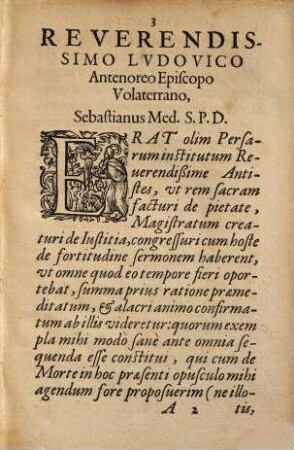 3
REVERENDIS-
SIMO LVDOVICO
Antenoreo Episcopo
Volaterrano,
Sebastianus Med. S. P. D.
ERAT olim Persa-
rum institutum Re-
uerendißime Anti-
stes, vt rem sacram
facturi de pietate,
Magistratum crea-
turi de Iustitia, congressuri cum hoste
de fortitudine sermonem haberent,
vt omne quod eo tempore fieri opor-
tebat, summa prius ratione præme-
ditatum, & alacri animo confirma-
tum ab illis videretur: quorum exem
pla mihi modo sane ante omnia se-
quenda esse constitui, qui cum de
Morte in hoc præsenti opusculo mihi
agendum fore proposuerim (ne illo-
A 2 tis,